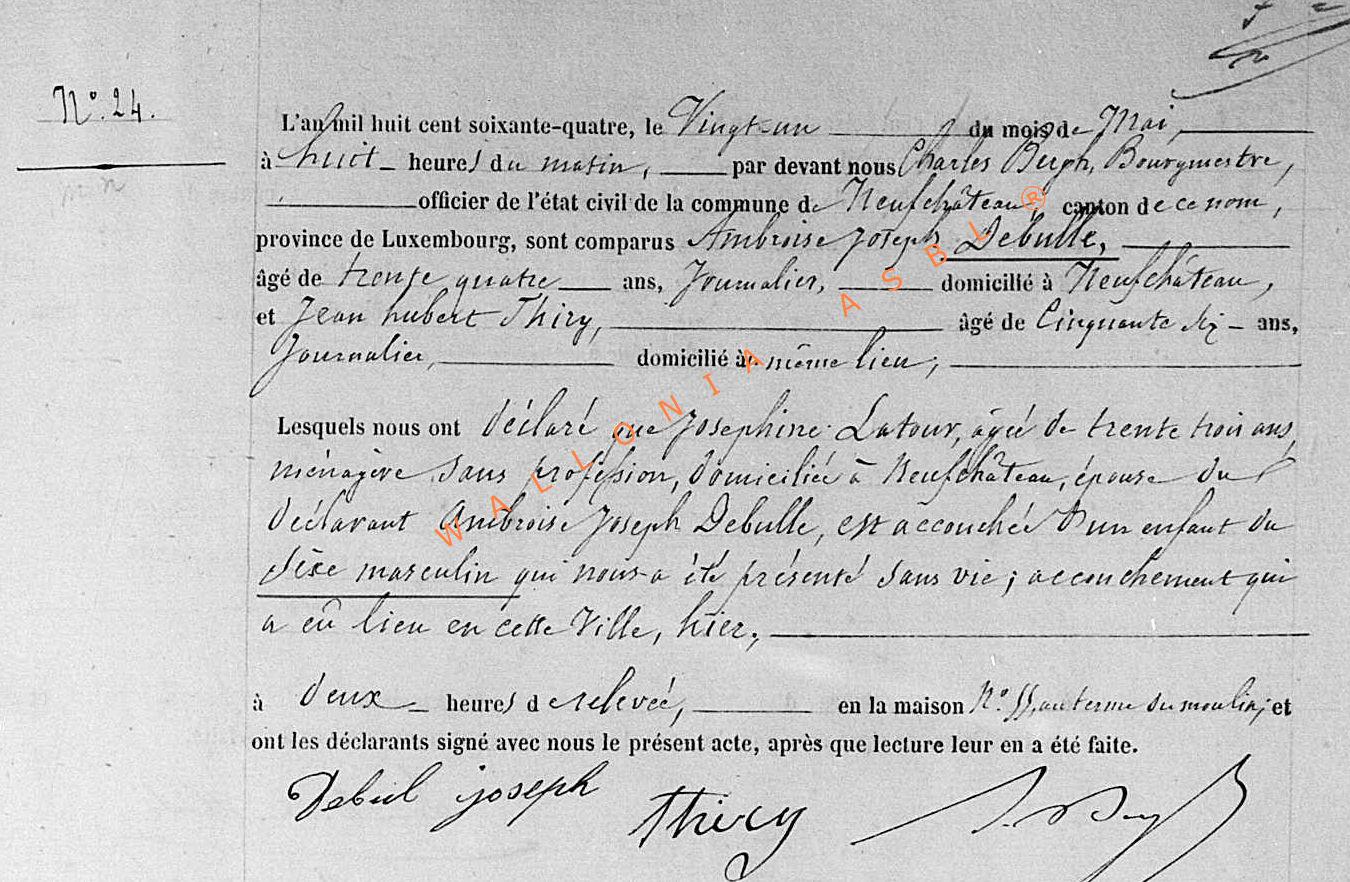 N° 24.
L'an mil huit cent soixante-quatre, le Vingt-un du mois de Mai,
à huit heures du matin, par devant nous Charles Bergh, Bourgmestre,
officier de l'état civil de la commune de Neufchâteau, canton de ce nom,
province de Luxembourg, sont comparus Ambroise Joseph Debulle,
âgé de trente quatre ans, Journalier, domicilié à Neufchâteau,
et Jean hubert Thiry, âgé de Cinquante six ans,
Journalier, domicilié à même lieu,
Lesquels nous ont déclaré que Josephine Latour, âgée de trente trois ans,
ménagère sans profession, domiciliée à Neufchâteau, épouse du
déclarant Ambroise Joseph Debulle, est accouchée d'un enfant du
sèxe masculin qui nous a été présenté sans vie; accouchement qui
a eû lieu en cette Ville, hier,
à deux heures de relevée, en la maison N° 55, au terme du moulin; et
ont les déclarants signé avec nous le présent acte, après que lecture leur en a été faite.
Debul joseph Thiry
WALLONIA ASBL ®